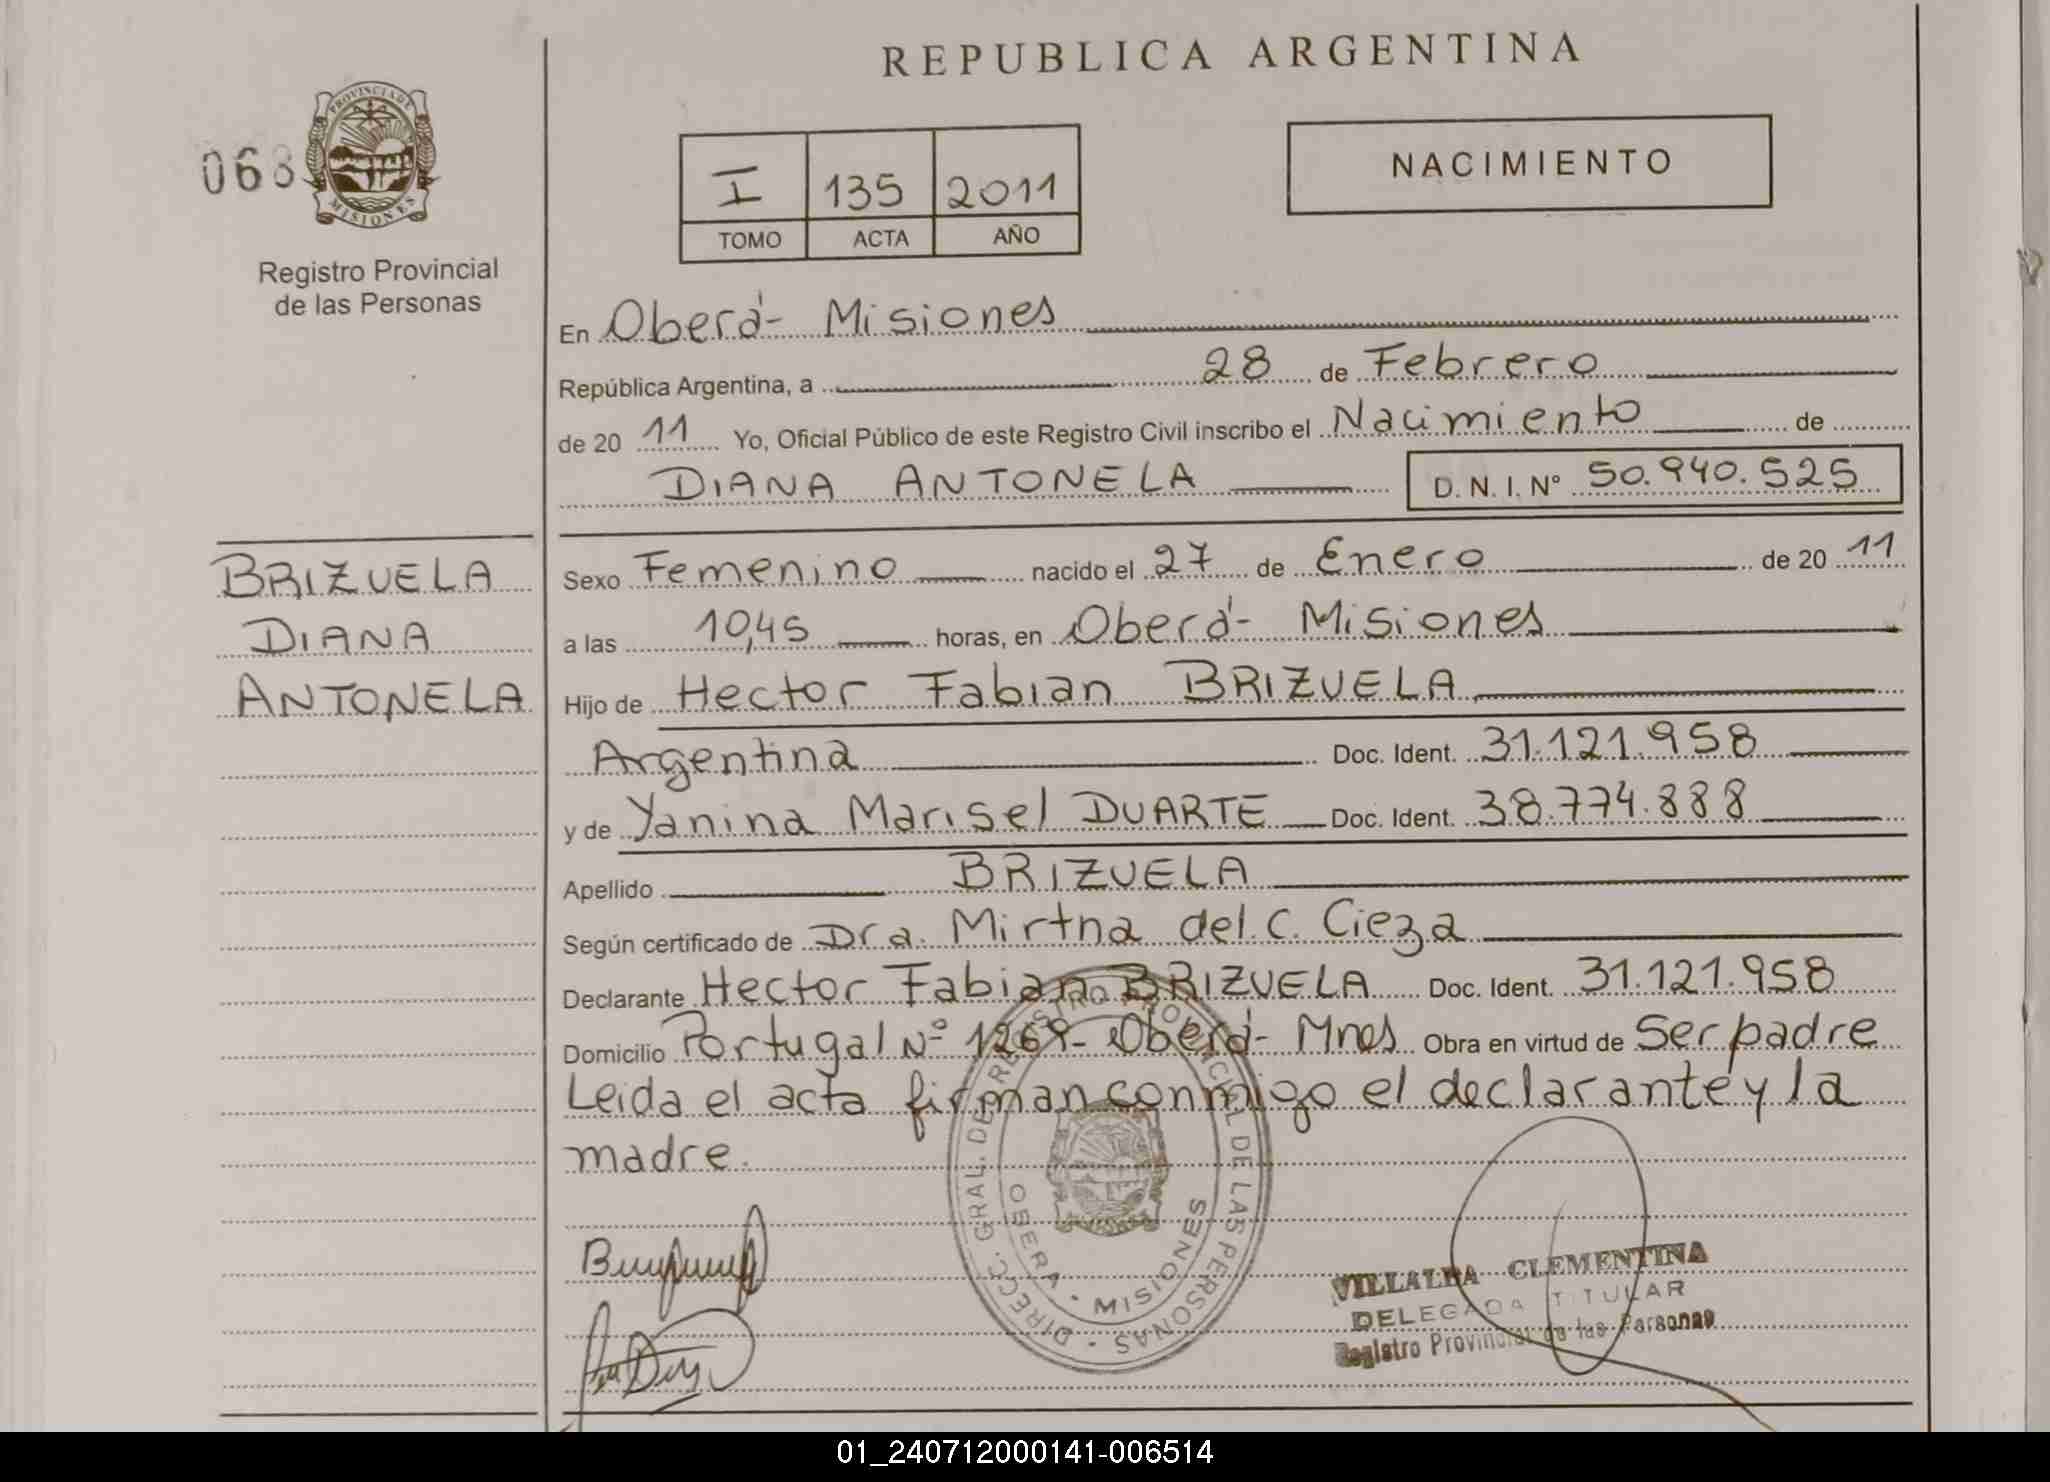 REPUBLICA ARGENTINA
PROVINCIA DE
MISIONES
068
Registro Provincial
de las Personas
I 135 2011
TOMO ACTA AÑO
NACIMIENTO
En Oberá- Misiones
República Argentina, a 28 de Febrero
de 20 11 Yo, Oficial Público de este Registro Civil inscribo el Nacimiento de
DIANA ANTONELA D. N. I. Nº 50.940.525
BRIZUELA
DIANA
ANTONELA
Sexo Femenino nacido el 27 de Enero de 20 11
a las 10,45 horas, en Oberá- Misiones
Hijo de Hector Fabian BRIZUELA
Argentina Doc. Ident. 31.121.958
y de Yanina Marisel DUARTE Doc. Ident. 38.774.888
Apellido BRIZUELA
Según certificado de Dra. Mirtha del.C. Cieza
Declarante Hector Fabian BRIZUELA Doc. Ident. 31.121.958
Domicilio Portugal Nº 1269- Oberá- Mnes Obra en virtud de Ser padre
Leida el acta firman conmigo el declarante y la
madre.
DIRECC. GRAL. DE REGISTRO PROVINCIAL DE LAS PERSONAS
OBERA - MISIONES
VILLALBA CLEMENTINA
DELEGADA TITULAR
Registro Provincial de las Personas
01_240712000141-006514